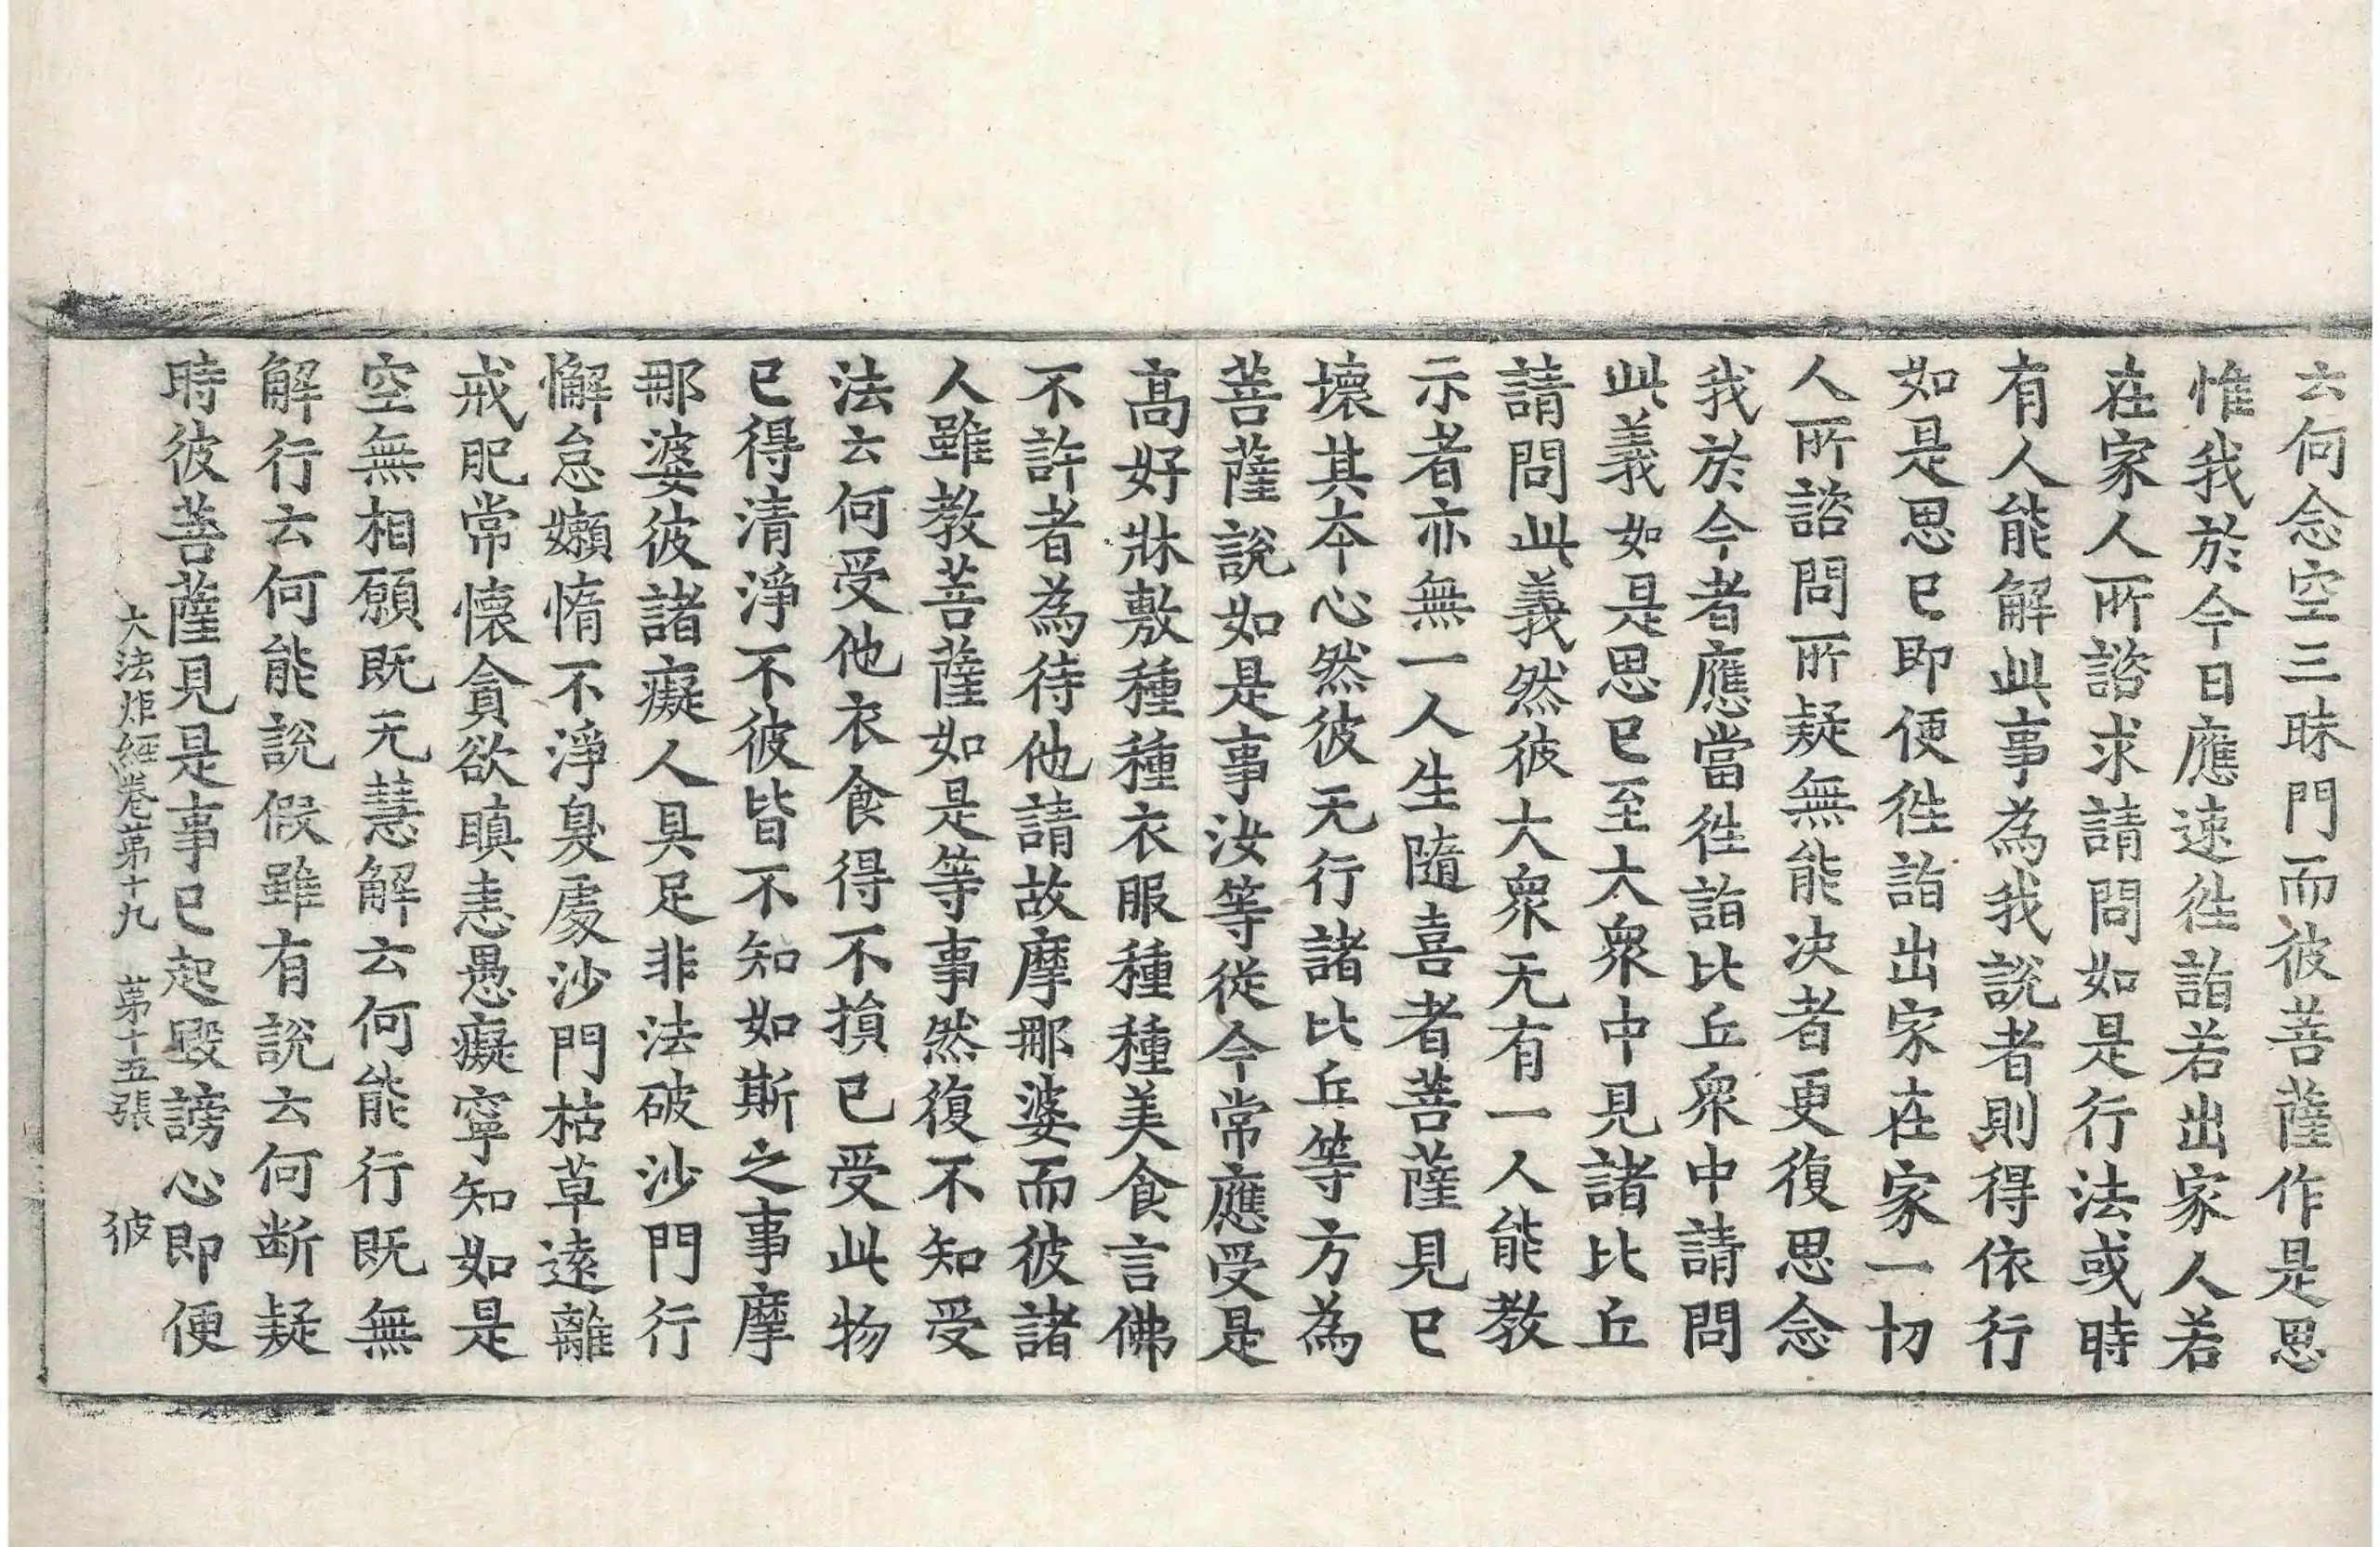 云何念空三昧門而彼菩薩作是思
惟我於今日應速徃詣若出家人若
在家人所諮求請問如是行法或時
有人能解此事為我說者則得依行
如是思已即便徃詣出家在家一切
人所諮問所疑無能决者更復思念
我於今者應當徃詣比丘衆中請問
此義如是思已至大衆中見諸比丘
請問此義然彼大衆无有一人能教
示者亦無一人生隨喜者菩薩見已
壞其本心然彼无行諸比丘等方為
菩薩說如是事汝等從今常應受是
高好牀敷種種衣服種種美食言佛
不許者為待他請故摩那婆而彼諸
人雖教菩薩如是等事然復不知受
法云何受他衣食得不損已受此物
已得清淨不彼皆不知如斯之事摩
那婆彼諸癡人具足非法破沙門行
懈怠嬾惰不淨臭處沙門枯草遠離
戒肥常懷貪欲瞋恚愚癡寧知如是
空無相願既无慧解云何能行既無
解行云何能說假雖有說云何断疑
時彼菩薩見是事已起毀謗心即便
大法炬經卷第十九 第十五張 彼